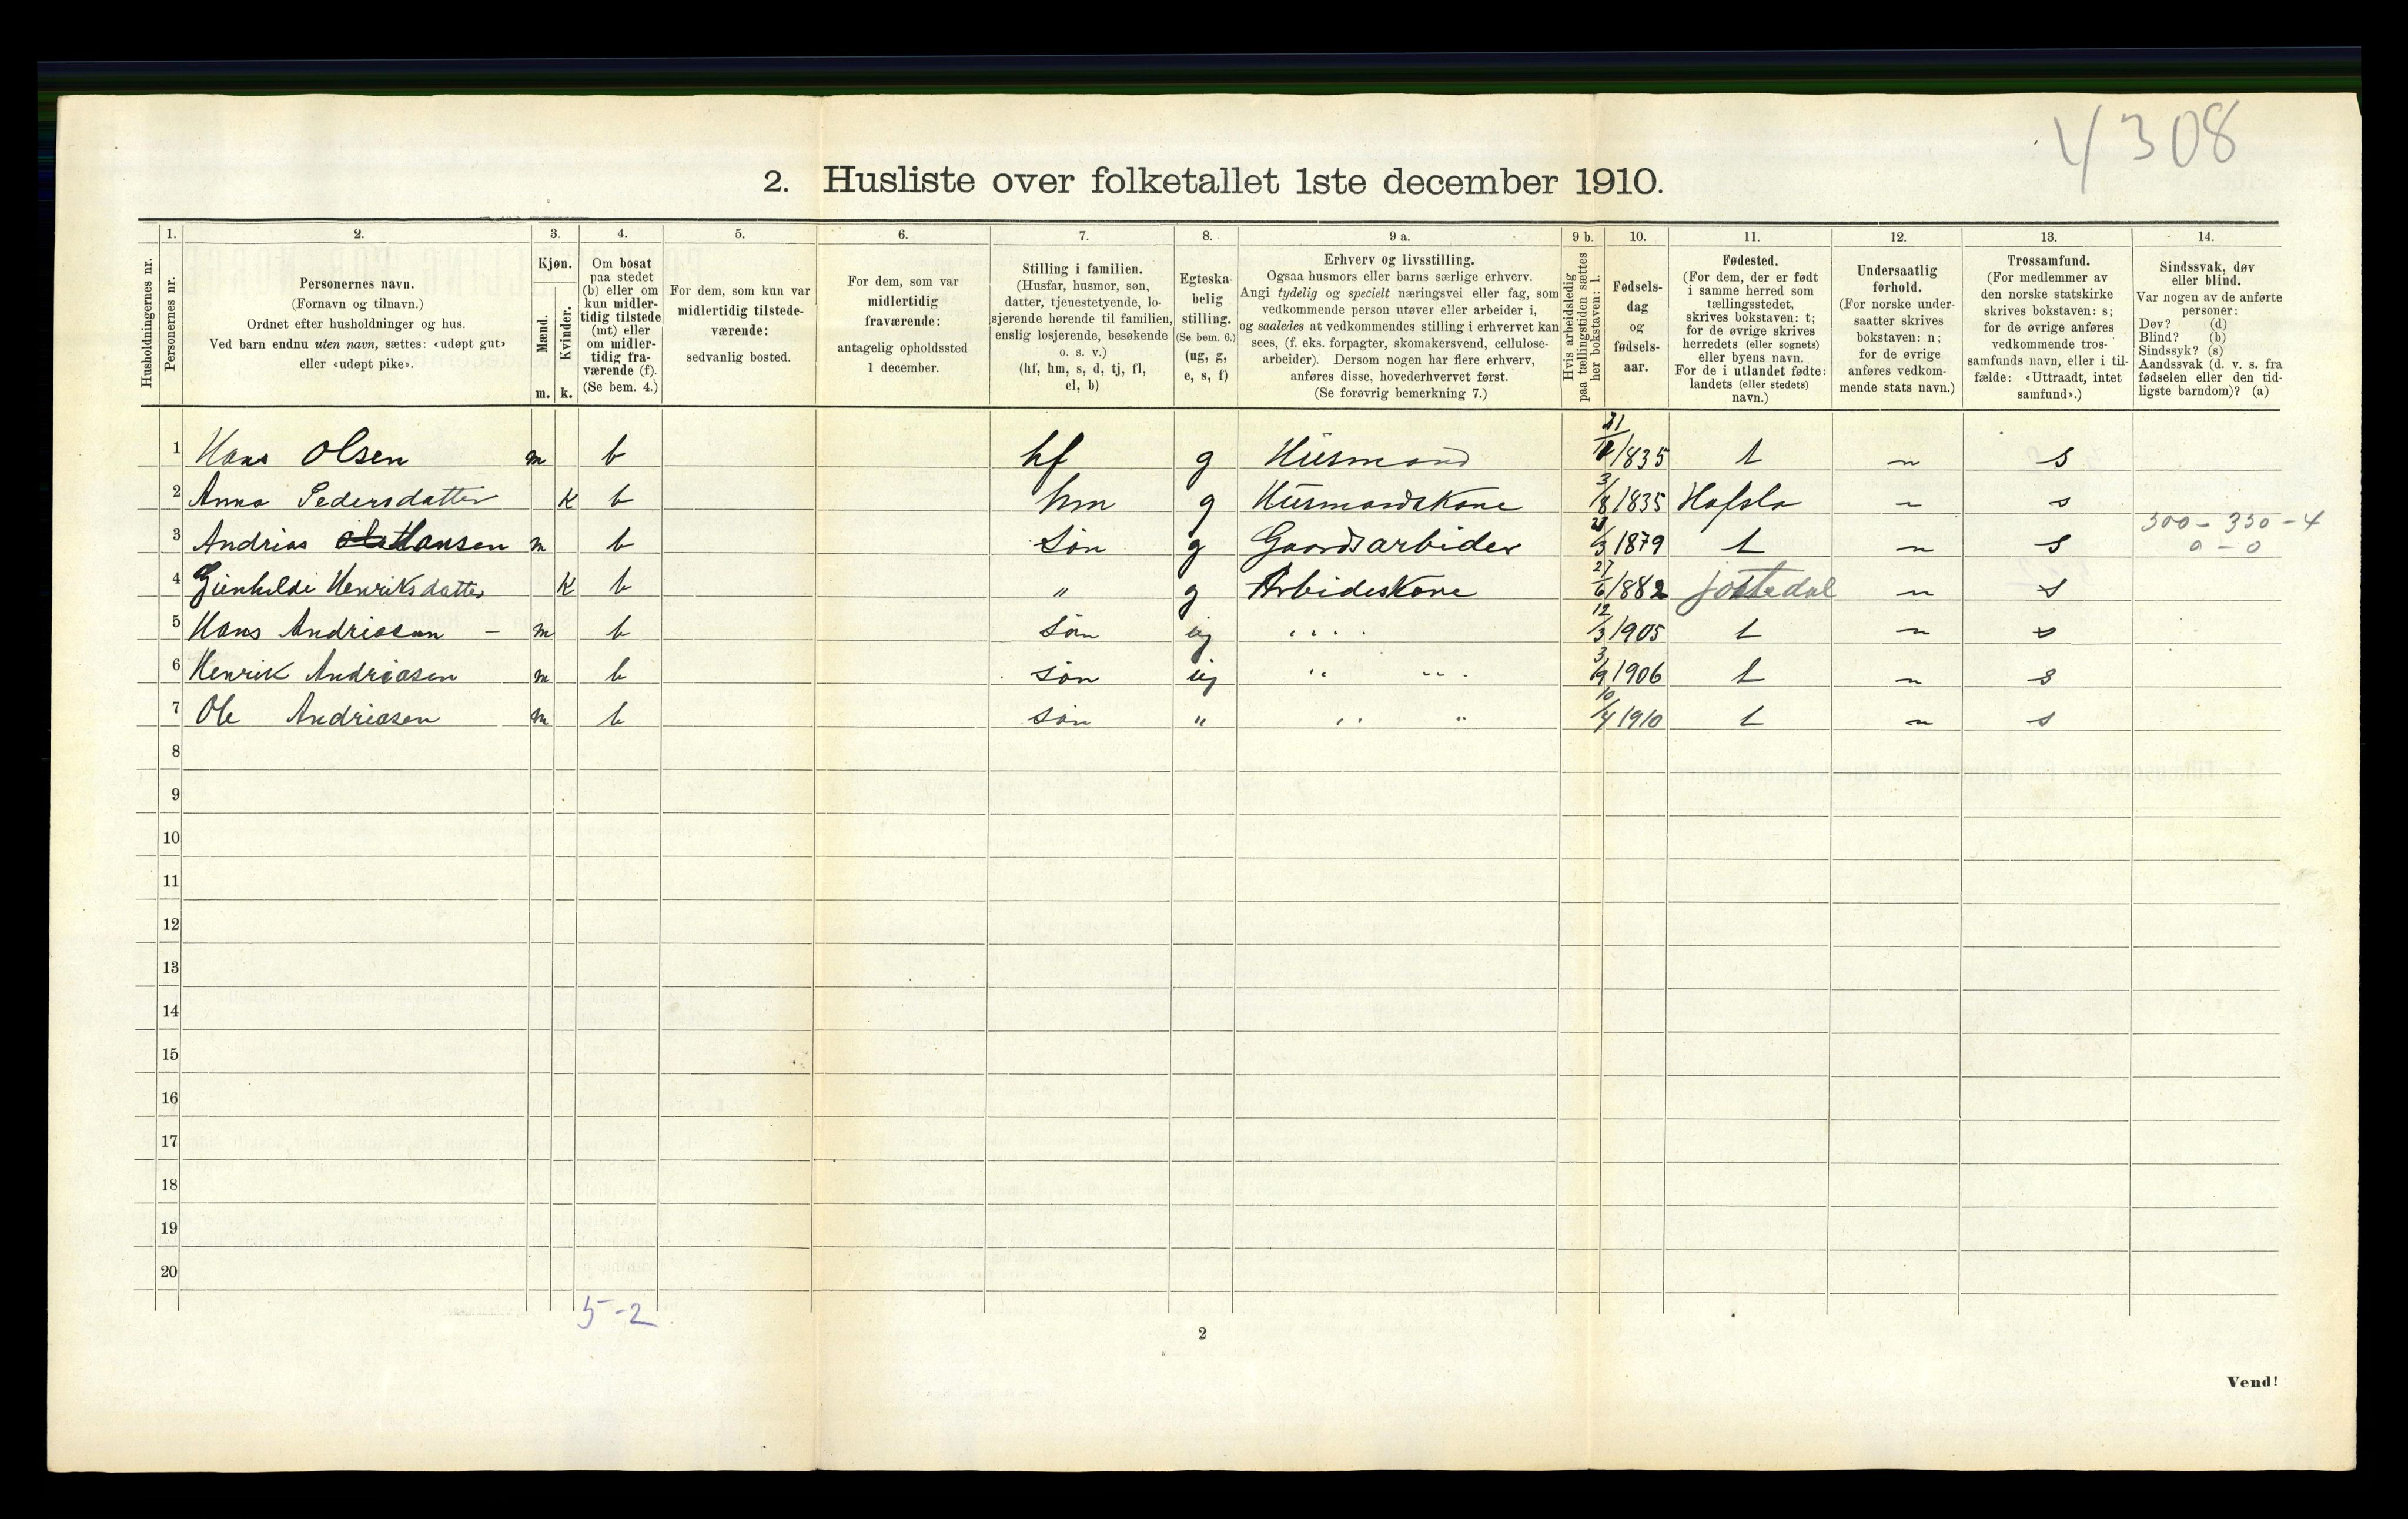 4308
2. Husliste over folketallet 1ste december 1910.
Husholdningernes nr.
1.
Personernes nr.
2.
Personernes navn.
(Fornavn og tilnavn.)
Ordnet efter husholdninger og hus.
Ved barn endnu uten navn, sættes: «udøpt gut»
eller «udøpt pike».
3.
Kjøn.
Mænd.
Kvinder.
m. k.
4.
Om bosat
paa stedet
(b) eller om
kun midler-
tidig tilstede
(mt) eller
om midler-
tidig fra-
værende (f).
(Se bem. 4.)
5.
For dem, som kun var
midlertidig tilstede-
værende:
sedvanlig bosted.
6.
For dem, som var
midlertidig
fraværende:
antagelig opholdssted
1 december.
7.
Stilling i familien.
(Husfar, husmor, søn,
datter, tjenestetyende, lo-
sjerende hørende til familien,
enslig losjerende, besøkende
o. s. v.)
(hf, hm, s, d, tj, fl,
el, b)
8.
Egteska-
belig
stilling.
(Se bem. 6.)
(ug, g,
e, s, f)
9 a.
Erhverv og livsstilling.
Ogsaa husmors eller barns særlige erhverv.
Angi tydelig og specielt næringsvei eller fag, som
vedkommende person utøver eller arbeider i,
og saaledes at vedkommendes stilling i erhvervet kan
sees, (f. eks. forpagter, skomakersvend, cellulose-
arbeider). Dersom nogen har flere erhverv,
anføres disse, hovederhvervet først.
(Se forøvrig bemerkning 7.)
9 b.
Hvis arbeidsledig
paa tællingstiden sættes
her bokstaven: l.
10.
Fødsels-
dag
og
fødsels-
aar.
11.
Fødested.
(For dem, der er født
i samme herred som
tællingsstedet,
skrives bokstaven: t;
for de øvrige skrives
herredets (eller sognets)
eller byens navn.
For de i utlandet fødte:
landets (eller stedets)
navn.)
12.
Undersaatlig
forhold.
(For norske under-
saatter skrives
bokstaven: n;
for de øvrige
anføres vedkom-
mende stats navn.)
13.
Trossamfund.
(For medlemmer av
den norske statskirke
skrives bokstaven: s;
for de øvrige anføres
vedkommende tros-
samfunds navn, eller i til-
fælde: «Uttraadt, intet
samfund».)
14.
Sindssvak, døv
eller blind.
Var nogen av de anførte
personer:
Døv? (d)
Blind? (b)
Sindssyk? (s)
Aandssvak (d. v. s. fra
fødselen eller den tid-
ligste barndom)? (a)
1 Hans Olsen m b hf g Husmand 1835 t n s
2 Anna Pedersdatter k b hm g Husmandskone 3/8 1835 Hafslo n s
3 Andrias Hansen m b Søn g Gaardsarbider 1879 t n s
300 - 350 - 4
0 - 0
4 Gunhilde Henriksdatter k b " g Arbideskone 27/6 1882 Jostedal n s
5 Hans Andriasen - m b Søn ug " " 12/3 1905 t n s
6 Henrik Andriasen m b søn ug " " 3/9 1906 t n s
7 Ole Andriasen m b søn " " " 10/4 1910 t n s
8
9
10
11
12
13
14
15
16
17
18
19
20
5-2
2
Vend!